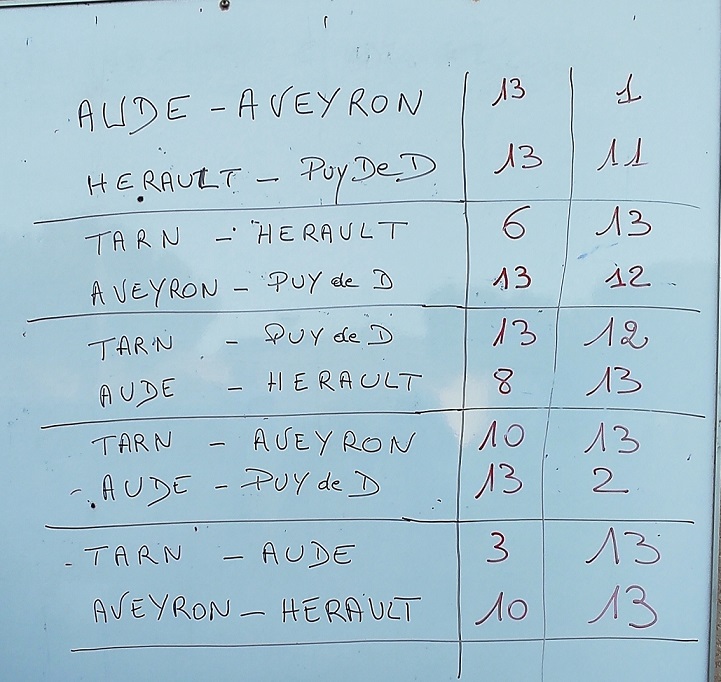 AUDE - AVEYRON 13 1
HERAULT - Puy De D 13 11
TARN - HERAULT 6 13
AVEYRON - PUY de D 13 12
TARN - PUY de D 13 12
AUDE - HERAULT 8 13
TARN - AVEYRON 10 13
AUDE - PUY de D 13 2
TARN - AUDE 3 13
AVEYRON - HERAULT 10 13